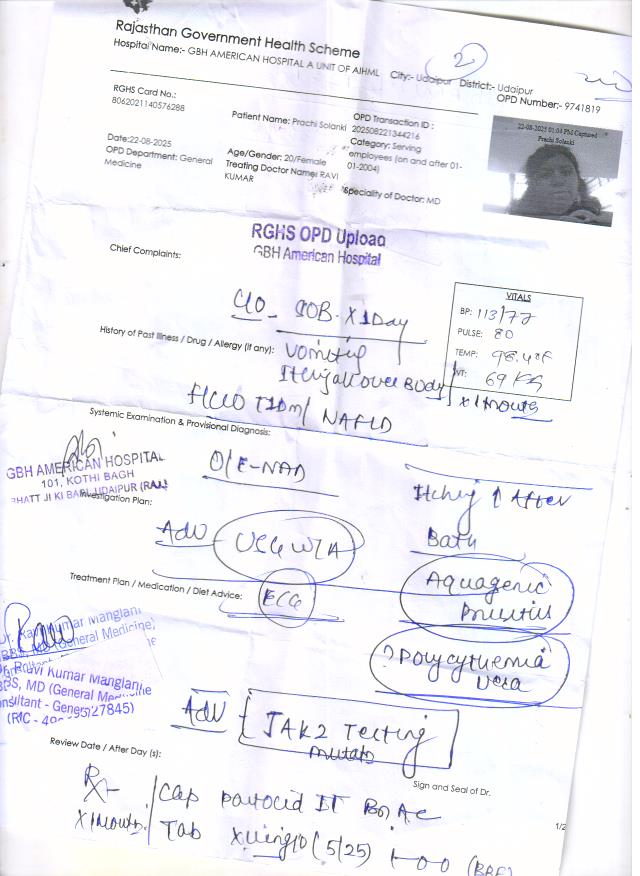 Rajasthan Government Health Scheme
Hospital Name:- GBH AMERICAN HOSPITAL A UNIT OF AIHML City:- Udaipur District:- Udaipur
2
OPD Number:- 9741819
RGHS Card No.:
8062021140576288
Patient Name: Prachi Solanki
OPD Transaction ID :
202508221344216
Date:22-08-2025
OPD Department: General
Medicine
Age/Gender: 20/Female
Treating Doctor Name: RAVI
KUMAR
Category: Serving
employees (on and after 01-
01-2004)
Speciality of Doctor: MD
22-08-2025 01:04 PM Captured
Prachi Solanki
RGHS OPD Upload
GBH American Hospital
Chief Complaints:
C/O - SOB - X 1 Day
VITALS
BP: 113/77
PULSE: 80
TEMP: 98.4°F
WT: 69 KG
History of Past Illness / Drug / Allergy (if any): Vomiting
Itching all over Body
x 1 month
H/C/O T1DM / NAFLD
Systemic Examination & Provisional Diagnosis:
GBH AMERICAN HOSPITAL
101, KOTHI BAGH
BHATT JI KI BARI, UDAIPUR (RAJ.)
O/E - NAD
Itching ↑ After
Bath
Investigation Plan:
Adv
UCG W/A
ECG
Aquagenic
Pruritis
Treatment Plan / Medication / Diet Advice:
? Polycythemia
Vera
Dr. Ravi Kumar Manglani
MBBS, MD (General Medicine)
Dr. Ravi Kumar Manglani
MBBS, MD (General Medicine)
Consultant - General
27845)
Adv
JAK2 Testing
mutatn
Review Date / After Day (s):
Sign and Seal of Dr.
Rx
X 1 month
Cap Pantocid IT BD AC
Tab (5/25) 1-0-0 (BBF)
1/2